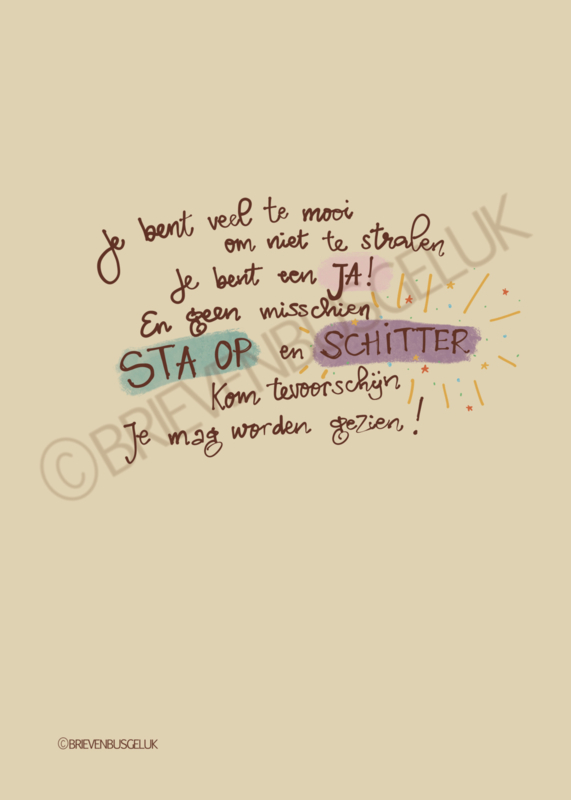 Je bent veel te mooi
om niet te stralen
Je bent een JA!
En geen misschien
STA OP en SCHITTER
Kom tevoorschijn
Je mag worden gezien!
©BRIEVENBUSGELUK
©BRIEVENBUSGELUK